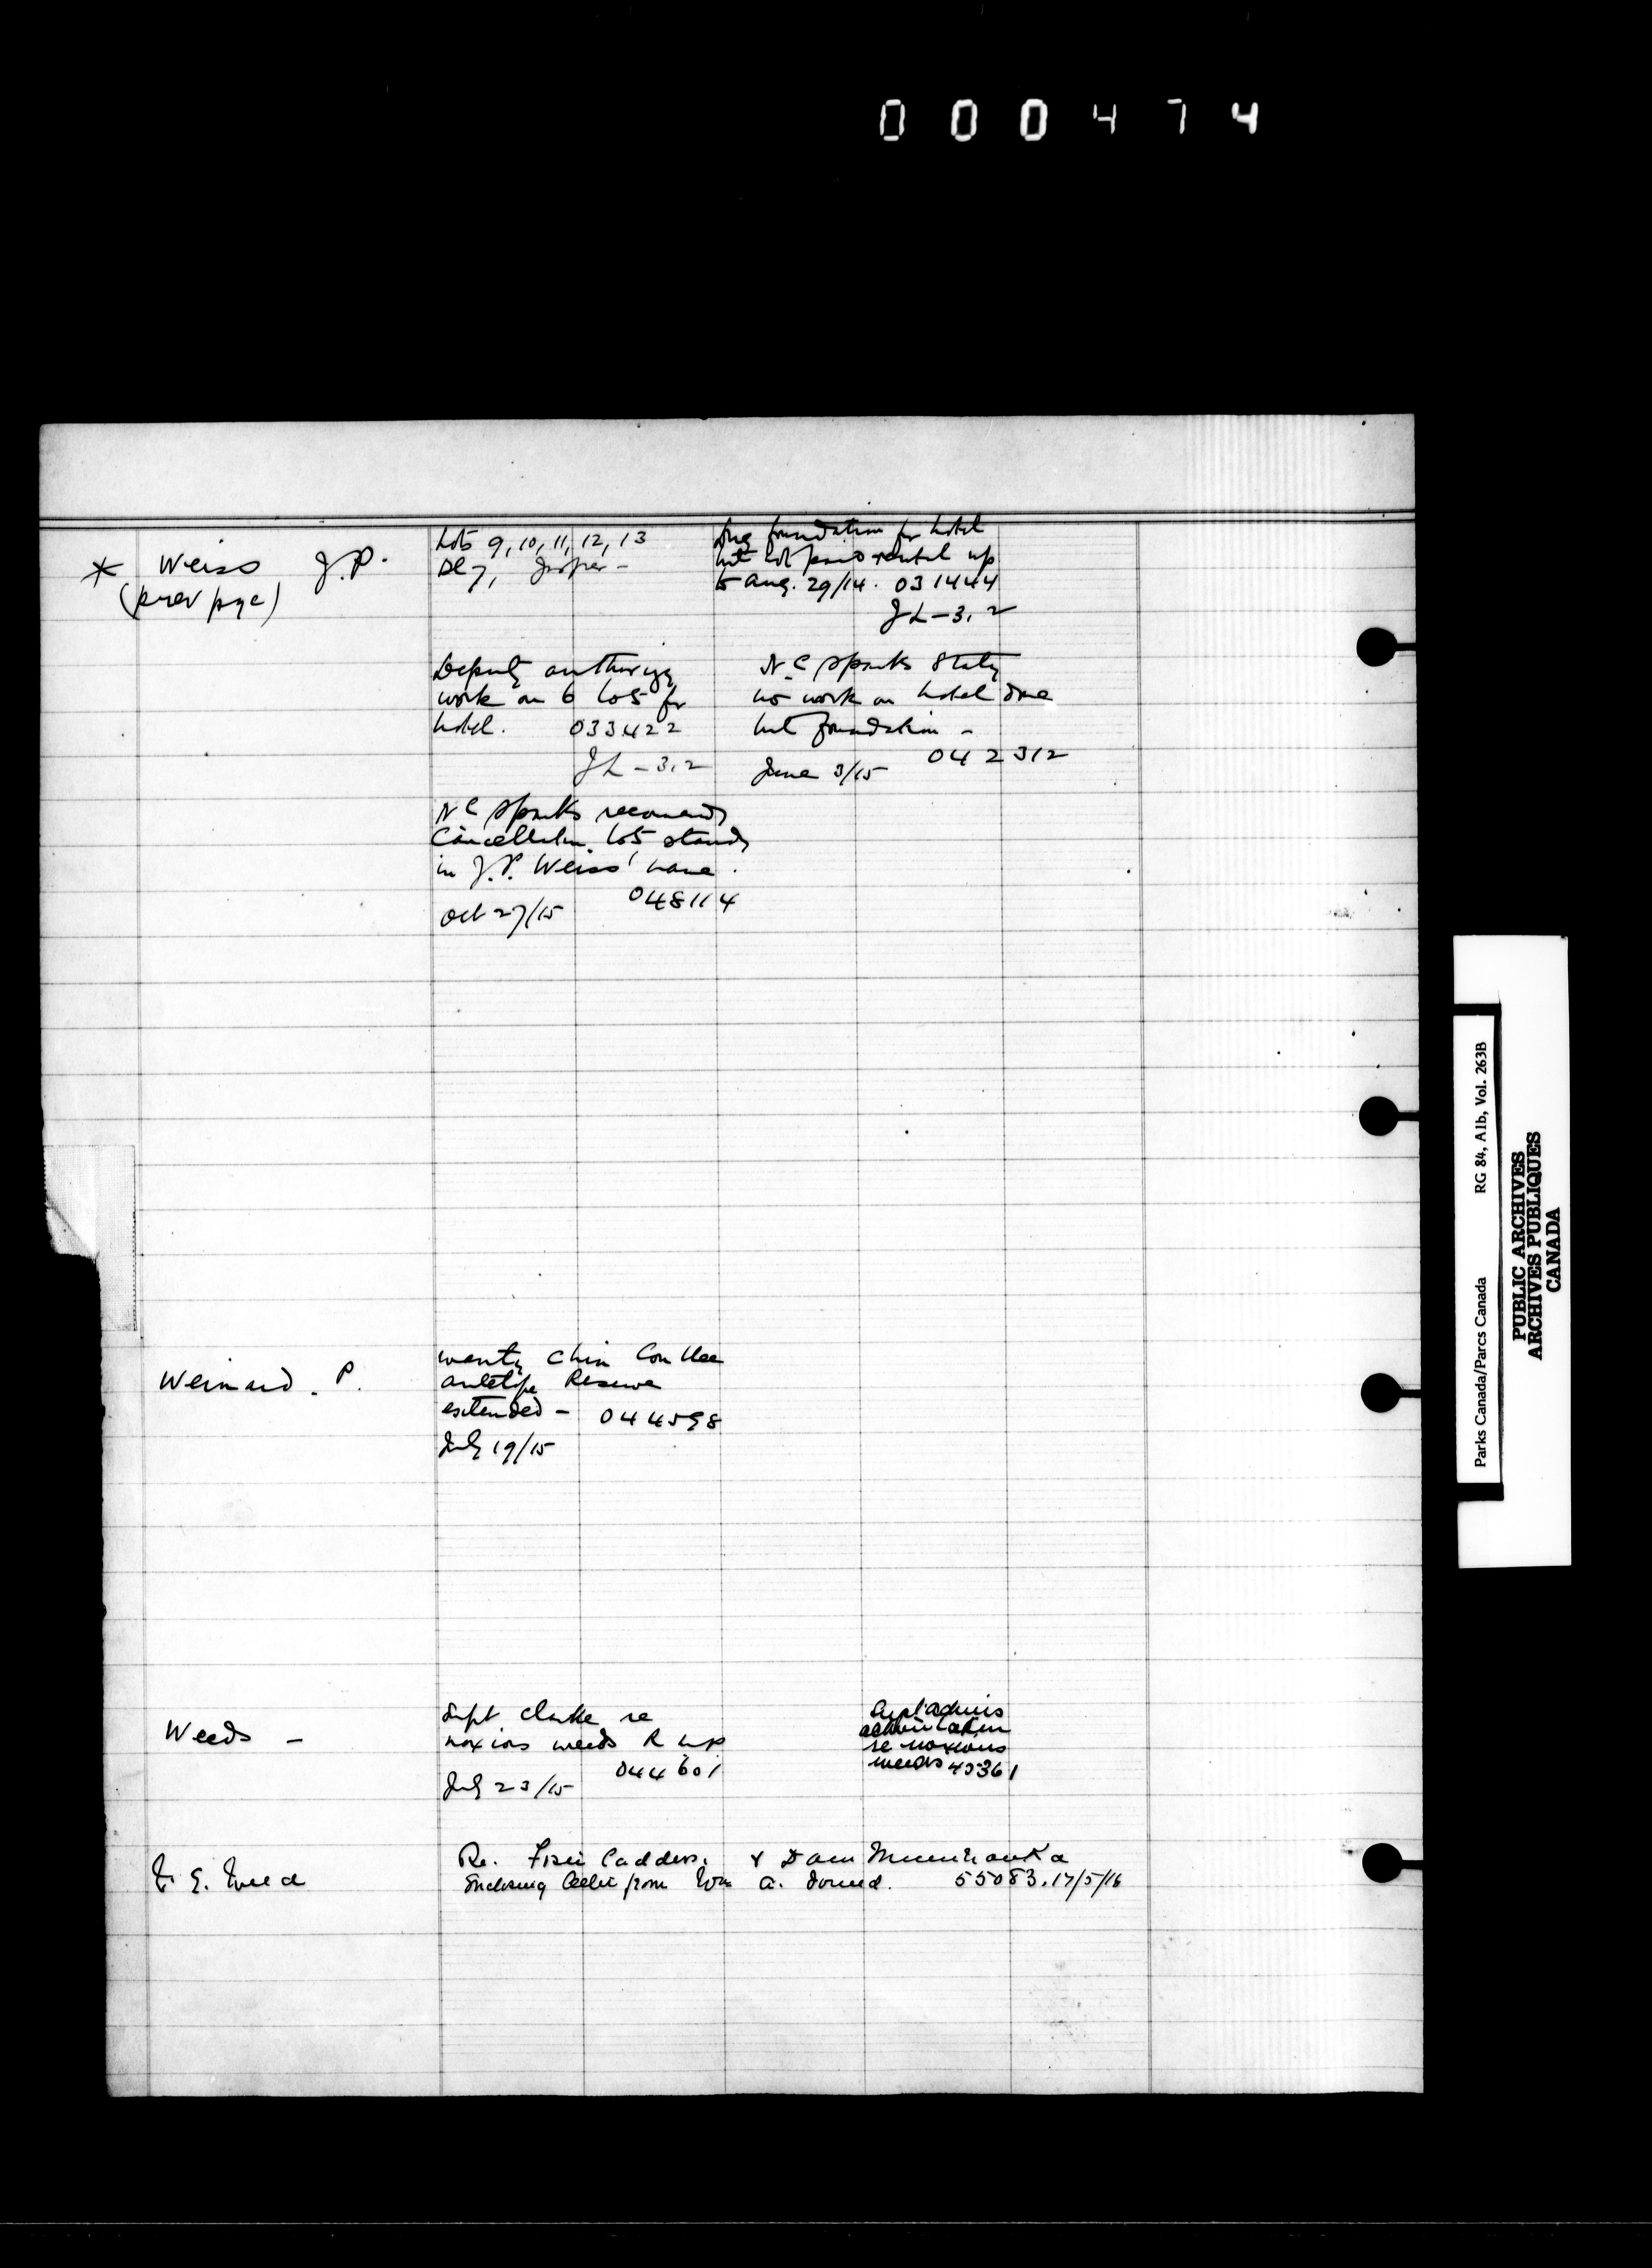 000474
* Weiss J.P.
(prev page)
Lots 9, 10, 11, 12, 13
Bl 7, Jasper -
dug foundation for hotel
but not paid rental up
to Aug. 29/14. 031444
JL-3.2
Deputy authorizg
work on 6 lots for
hotel. 033422
JL-3.2
N C Sparks Statg
no work on hotel done
but foundation -
June 3/15 042312
N C Sparks recomends
Cancellation. Lots stands
in J.P. Weiss' name.
Oct 27/15 048114
Weinard. P.
wantg Chin Coulee
antelope Reserve
extended - 044598
July 19/15
Weeds -
Supt Clarke re
noxious weeds R Mt P
044601
July 23/15
re noxious
weeds 45361
Re. & Dam Minnewanka
Enclosing letter from Wm A.
55083. 17/5/16
Parks Canada/Parcs Canada RG 84, Alb, Vol. 263B
PUBLIC ARCHIVES
ARCHIVES PUBLIQUES
CANADA